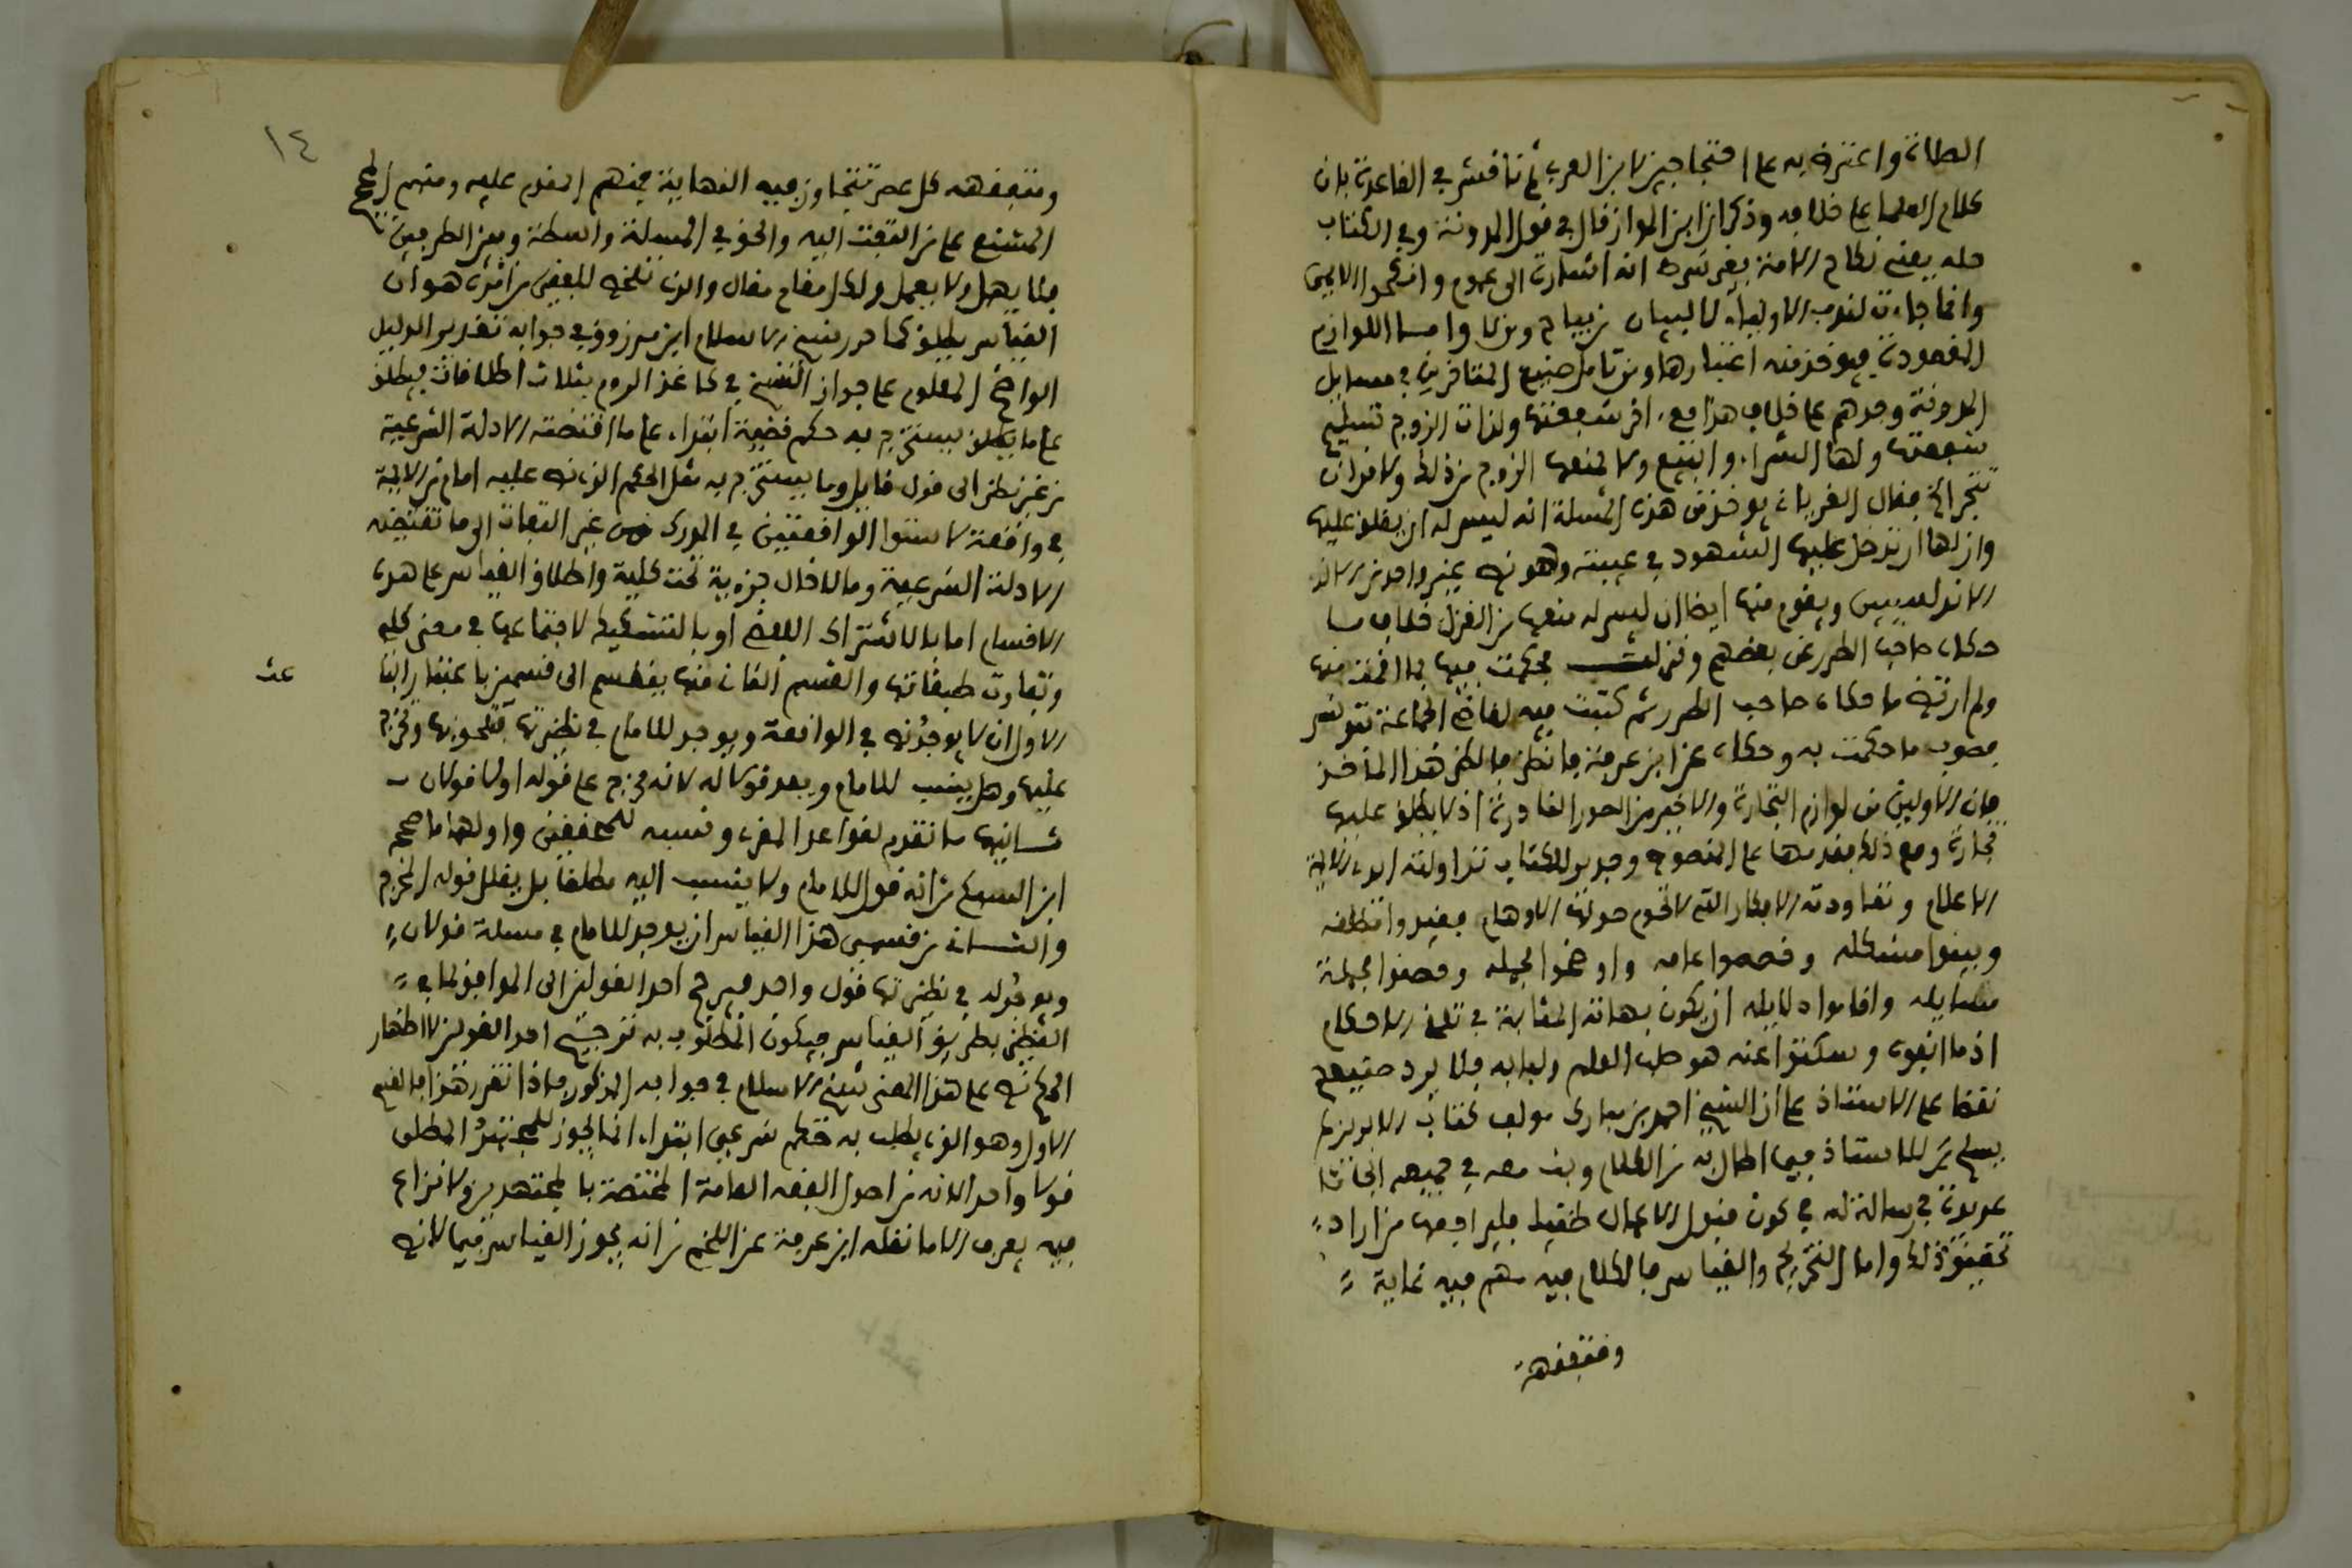 واعترض به على احتجاجين لابن العربي ثم ناقش في القاعدة بان
كلام العلماء على خلافه وذكر ان ابن المواز قال في قول المدونة وفي الكتاب
حله يعني نكاح الامة بغير شرط انه اشارة الى عموم وانكحوا الايمى
وانما جاءت لندب الاولياء لا لبيان من يباح ومن لا واما اللوازم
المقصودة فيوخذ منه اعتبارها ومن تامل صنيع المتاخرين في مسايل
المدونة وجدهم على خلاف هذا
ولها الشراء والبيع ولا يمنعها الزوج من ذلك ولا من ان
تتجر الخ فقال يوخذ من هذه المسئلة انه ليس له ان يغلق عليها
وان لها ان تدخل عليها الشهود في غيبته وهو نص غير واحد من
الاندلسيين ويقوم منها ايضا ان ليس له منعها من الغزل خلاف ما
حكاه صاحب الطرر عن بعضهم ونزلت فحكمت فيها بما اخذ منها
ولم ارتض ما حكاه صاحب الطرر ثم كتبت فيه لقاضي الجماعة بتونس
فصوب ما حكمت به وحكاه عن ابن عرفة فانظر فالكل هذا الماخذ
فان الاولين من لوازم التجارة والاخير من الصور النادرة اذ لا يطلق عليها
تجارة ومع ذلك فقدمها على المنصوص وجدير بالكتاب تداولته ايدي الايمة
الاعلام وتعاودته الافكار التي لا تحوم حولها الاوهام فقيدوا مطلقه
وبينوا مشكله وخصصوا عامه واوضحوا مجمله
مسايله واقاموا دلايله ان يكون بهاته المثابة في تلقي الاحكام
اذ ما ابقوه وسكتوا عنه هو صلب العلم ولبابه فلا يرد صنيعهم
نقضا على الاستاذ على ان الشيخ احمد بن مبارك مولف كتاب الابريز لم
يسلم للاستاذ فيما اطال به من الكلام وبث معه في جميعه ابحاثا
عديدة في رسالة له في كون فليراجعها من اراد
تحقيق ذلك واما التخريج والقياس فالكلام فيه مهم فيه غاية
ومتفقهة
١٤
ومتفقهة كل عصر تتجاوز فيه النهاية فمنهم المقدم عليه ومنهم
المشنع على من التفت اليه والحق في المسئلة واسطة وبين الطرفين
فلا يهمل ولا يعمل ولكل مقام مقال والذي تلخص للبعض من ائمة هو ان
القياس يطلق كما حرر شيخ الاسلام ابن مرزوق في جوابه تقدير الدليل
الواضح المعلوم على جواز النسخ في كاغد الروم بثلاث اطلاقات فيطلق
على ما يستخرج به حكم قضية ابتداء على ما اقتضته الادلة الشرعية
من غير نظر الى قول قايل وما يستخرج به مثل الحكم الذي نص عليه امام من الايمة
في واقعة لاستواء الواقعتين في المدرك من غير التفات الى ما تقتضيه
الادلة الشرعية وما لادخال جزءية تحت كلية واطلاق القياس على هذه
الاقسام اما بالاشتراك اللفظي او بالتشكيك لاجتماعها في معنى كلي
وتفاوت طبقاتها والقسم الثاني منها ينقسم الى قسمين باعتبار
الاول ان لا يوجد نص في الواقعة ويوجد للامام في نظيرتها فتلحق بها وتخرج
عليها وهل ينسب للامام ويعد قولا له لانه مخرج على قوله اولا قولان
ثانيها ما تقدم لقواعد المقري ونسبه للمحققين واولهما ما صححه
ابن السبكي من انه قول للامام ولا ينسب اليه مطلقا بل يقال قوله المخرج
والثاني من قسمي هذا القياس ان يوجد للامام في مسئلة قولان
ويوجد له في نظيرتها قول واحد فيرجح احد القولين الى الموافق لما في
النظير بطريق القياس فيكون المطلوب به ترجيح احد القولين لا اظهار
الحكم نص على هذا المعنى شيخ الاسلام في جوابه المذكور فاذا تقرر هذا فالقسم
الاول وهو الذي يطلب به حكم شرعي ابتداء انما يجوز للمجتهد المطلق
قولا واحدا لانه من اصول الفقه العامة المختصة بالمجتهدين ولا نزاع
فيه يعرف الا ما نقله ابن عرفة عن اللخمي من انه يجوز القياس فيما لا نص